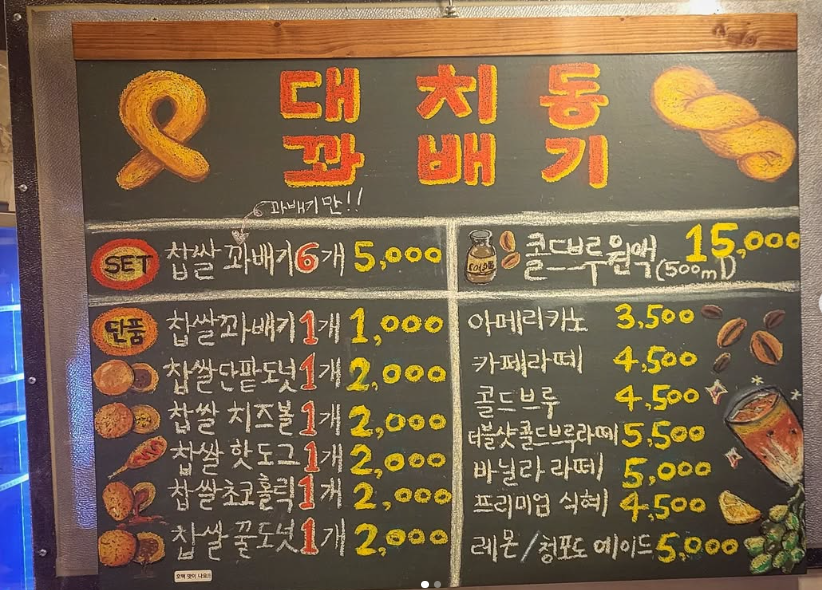 대치동
꽈배기
꽈배기만!!
SET 찹쌀 꽈배기 6개 5,000
단품 찹쌀꽈배기 1개 1,000
찹쌀단팥도넛 1개 2,000
찹쌀 치즈볼 1개 2,000
찹쌀 핫도그 1개 2,000
찹쌀초코홀릭 1개 2,000
찹쌀 꿀도넛 1개 2,000
콜드브루원액 (500ml) 15,000
아메리카노 3,500
카페라떼 4,500
콜드브루 4,500
더블샷콜드브루라떼 5,500
바닐라 라떼 5,000
프리미엄 식혜 4,500
레몬/청포도 에이드 5,000